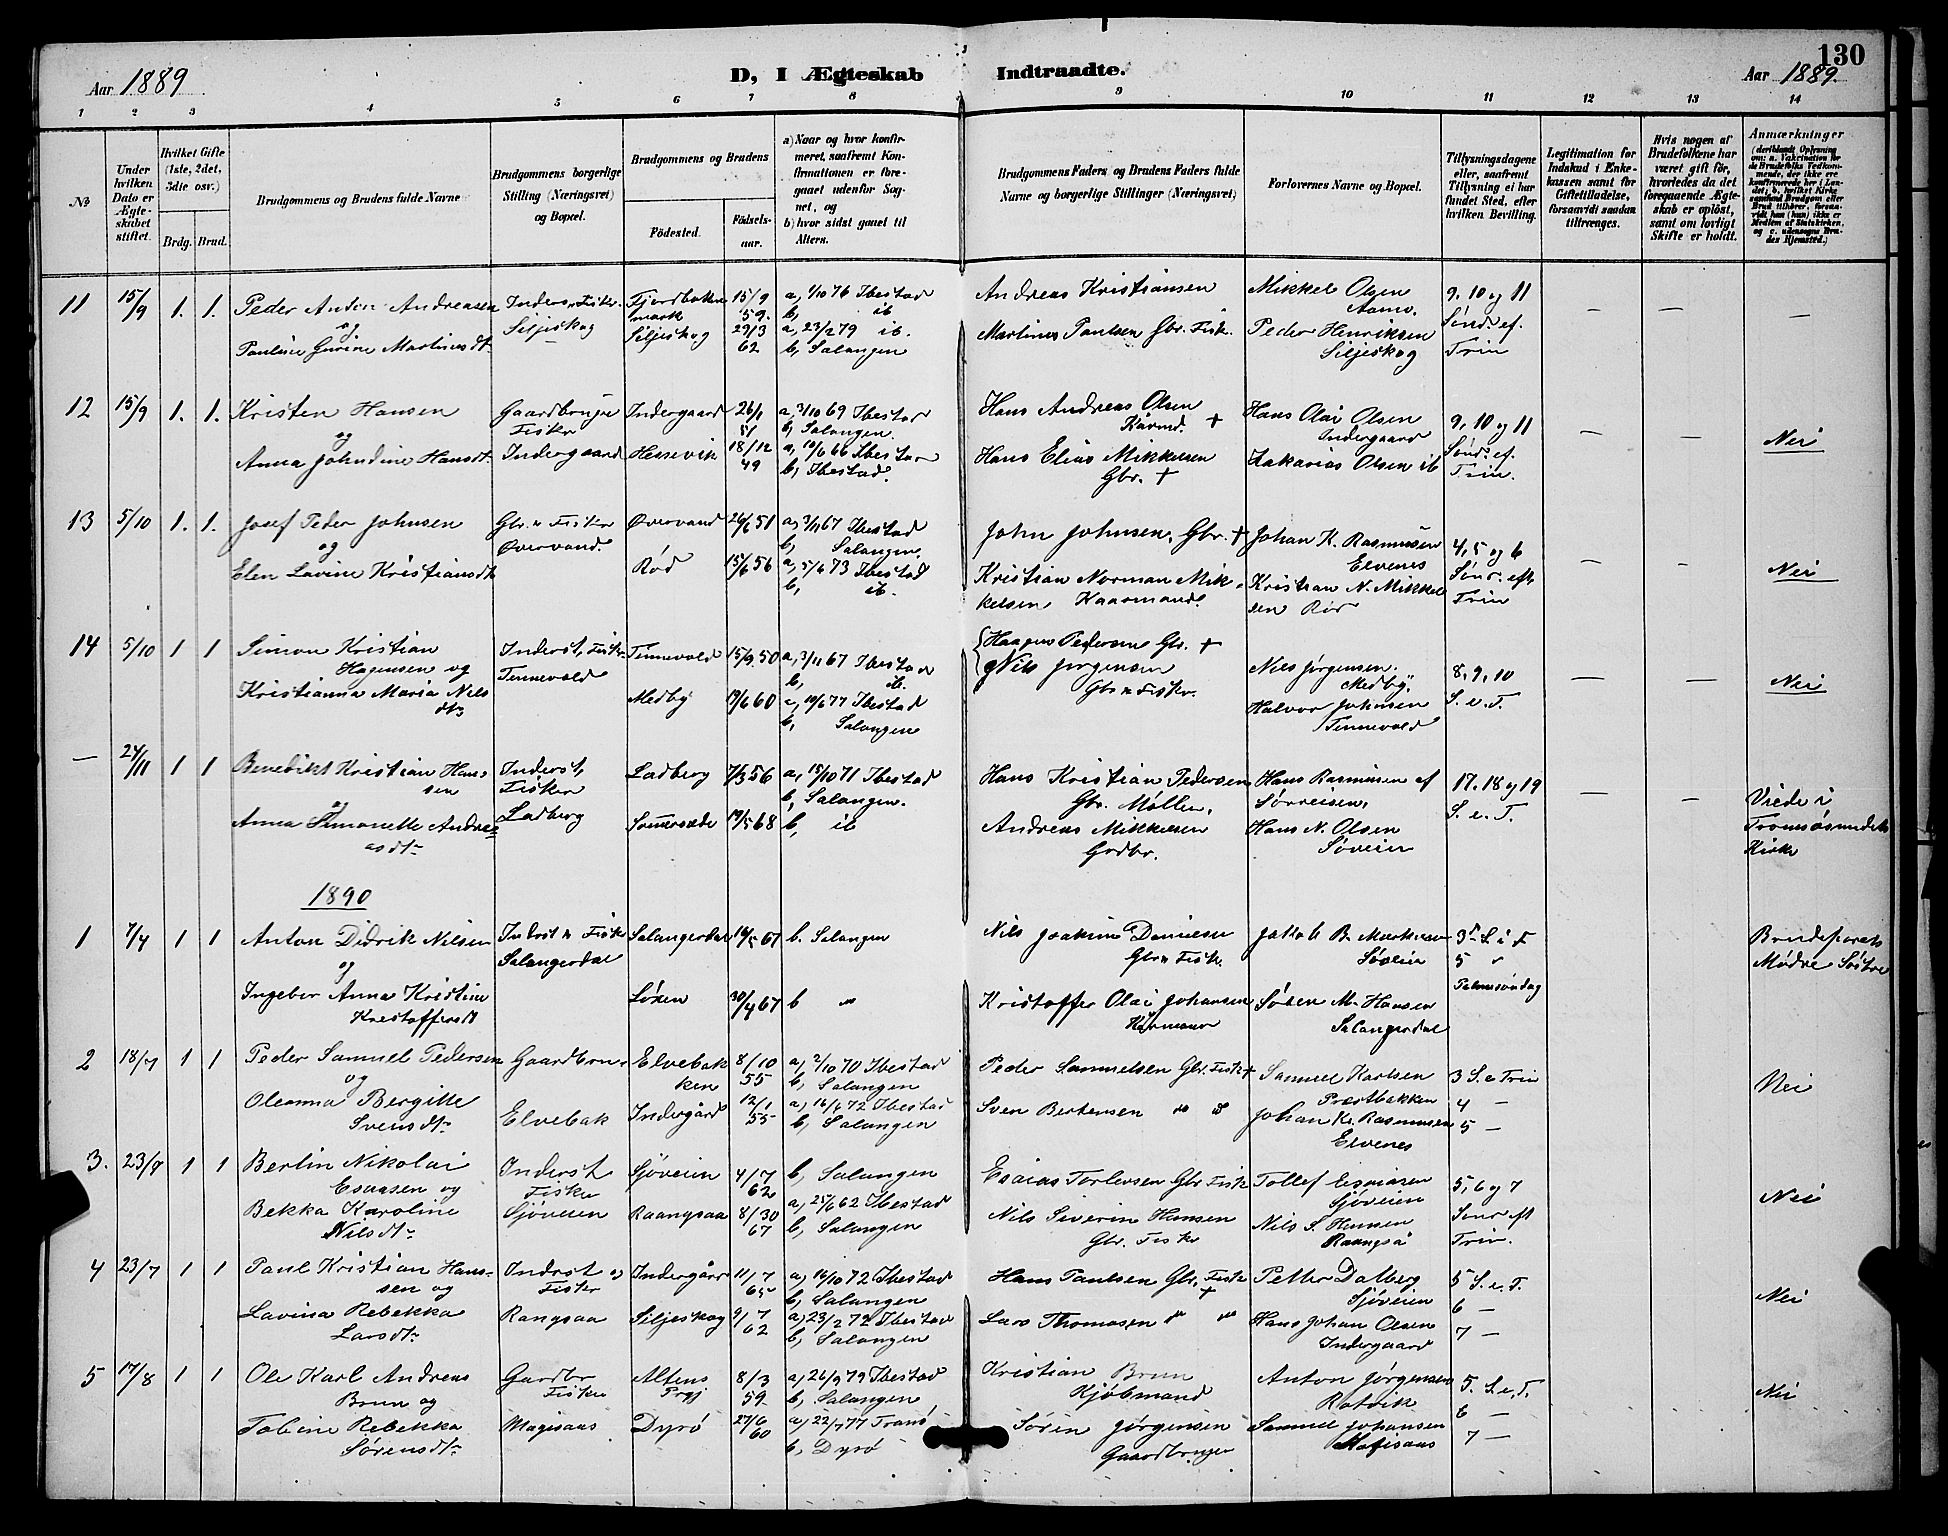 130
Aar 1889
D, I Ægteskab Indtraadte.
Aar 1889.
1 2 3 4 5 6 7 8 9 10 11 12 13 14
No
Under hvilken Dato er Ægteskabet stiftet.
Hvilket Gifte (1ste, 2det, 3die osv.)
Brdg. Brud.
Brudgommens og Brudens fulde Navne
Brudgommens borgerlige Stilling (Næringsvei) og Bopæl.
Brudgommens og Brudens
Fødested.
Fødselsaar.
a) Naar og hvor konfirmeret, saafremt Konfirmationen er foregaaet udenfor Sognet, og
b) hvor sidst gaaet til Alters.
Brudgommens Faders og Brudens Faders fulde Navne og borgerlige Stillinger (Næringsvei)
Forlovernes Navne og Bopæl.
Tillysningsdagene eller, saafremt Tillysning ei har fundet Sted, efter hvilken Bevilling.
Legitimation for Indskud i Enkekassen samt for Giftetilladelse, forsaavidt saadan tiltrænges.
Hvis nogen af Brudefolkene har været gift før, hvorledes da det foregaaende Ægteskab er opløst, samt om lovligt Skifte er holdt.
Anmærkninger
11 15/9 1. 1. Peder Anton Andreasen
og
Pauline Gurine Martinusdt.
Inderst, Fisker. Siljeskog
Fjordbotnmark 15/9 59.
Siljeskog 29/3 62
a, 1/10 76 Ibestad
b, ib
a, 23/2 79 ib.
b, Salangen
Andreas Kristiansen
Martinus Paulsen Gbr. Fisk.
Mikkel Olsen
Peder Henriksen
Siljeskog
9, 10 og 11
Sønd. ef.
Trin
— — —
12 15/9 1. 1. Kristen Hansen
og
Anna Johndine Hansdt.
Gaardbruger
Fisker
Indergaard
Indergaard 26/1 51
Hessevik 18/12 49
a, 3/10 69 Ibestad
b, Salangen.
b, Ibestad.
Hans Andreas Olsen
Kårmd. +
Hans Elias Mikkelsen
Gbr. +
Hans Olai Olsen
Indergaard
Zakarias Olsen ib
9, 10 og 11
Sønd. ef.
Trin.
— — Nei
13 5/10 1. 1. Josef Peder Johnsen
og
Elen Lavine Kristiansdt
Gbr. & Fisker
Øvervand.
Øvervand 26/6 51
Rød 15/6 56
a, 3/11 67 Ibestad
b, Salangen.
a, 5/6 73 Ibestad
b, ib.
John Johnsen, Gbr. +
Kristian Norman Mikkelsen Kaarmand.
Johan K. Rasmusen
Elvenes
Kristian N. Mikkelsen
4, 5 og 6
Sønd. eft
Trin
— - Nei
14 5/10 1 1 Simon Kristian
Hagensen og
Kristianna Maria Nilsdt
Inderst, Fisker
Tennevold
Tennevold 15/9 50
Medby 19/6 60
a, 3/11 67 Ibestad
b, ib.
a, 10/6 77 Ibestad
b, Salangen
Haagen Pedersen Gbr. +
Nils Jørgensen
Gbr & Fisker.
Nils Jørgensen.
Medby.
Halvor Johnsen
Tennevold
8, 9, 10
S. e. T.
— — Nei
— 24/11 1 1 Benedikt Kristian Hansen
og
Anna Simonette Andreasdt
Inderst,
Fisker
Ladberg
Ladberg 7/3 56
Sommersæde 19/5 68
a, 15/10 71 Ibestad
b, Salangen.
b, ib
Hans Kristian Pedersen
Gbr. Møller,
Andreas Mikkelsen
Grdbr.
Hans Rasmusen af
Sørreisen,
Hans N. Olsen
Søveien
17. 18 og 19
S. e. T.
— —
Viede i
Tromsøsundets
Kirke
1890
1 7/4 1 1 Anton Didrik Nilsen
og
Ingebor Anna Kristine
Kristoffersdt
Inderst & Fisk
Salangerdal
Salangerdal 14/5 67
Løxen 30/4 67
b. Salangen
b "
Nils Joakim Danielsen
Gbr & Fisk.
Kristoffer Olai Johansen
Kårmand
Jakob B. Markusen
Søveien
Søren M. Hansen
Salangerdal
3 S. i F
5 "
Palmesøndag
Brudeparets
Mødre Søstre
2 18/7 1 1 Peder Samuel Pedersen
og
Oleanna Bergitte
Svensdt.
Gaardbru.
Elvebak
Elvebakken 8/10 55
Indergård 12/1 55
a, 2/10 70 Ibestad
b, Salangen
a, 16/6 72 Ibestad
b, Salangen
Peder Samuelsen Gbr. Fisk +
Sven Bertensen " "
Samuel Karlsen
Præstbakken
Johan Kr. Rasmusen
Elvenes
3 S. e Trin
4 —
5 —
Nei
3. 23/7 1 1 Bertin Nikolai
Esaiasen og
Bekka Karoline
Nilsdt.
Inderst
Fisker
Sjøveien
Sjøveien 4/7 62
Raangsaa 8/30 67
b, Salangen
a, 25/6 62 Ibestad
b, Salangen
Esaias Torlevsen Gbr Fisk
Nils Siverin Hansen
Gbr. Fisker
Tollef Esaiasen
Sjøveien
Nils S. Hansen
Raangså
5, 6 og 7
Sønd eft
Trin.
Nei
4 23/7 1 1 Paul Kristian Hansen og
Lavina Rebekka
Larsdt.
Inderst og
Fisker
Rangsaa
Indergård 11/7 65
Siljeskog 9/7 62
a, 16/10 72 Ibestad
b, Salangen
a, 23/2 72 Ibestad
b, Salangen
Hans Paulsen Gbr. Fisk +
Lars Thomasen " "
Petter Dalberg
Sjøveien
Hans Johan Olsen
Indergaard
5 S. e. T.
6 —
7 —
Nei
5 17/8 1 1 Ole Karl Andreas
Brun og
Tobine Rebekka
Sørensdt.
Gardbr
Fisker
Altens
Prgj 8/3 59
Dyrø 27/6 60
a, 26/9 79 Ibestad
b, Salangen
a, 22/7 77 Tranø
b, Dyrø
Kristian Brun
Kjøbmand
Søren Jørgensen
Gaardbruger
Anton Jørgensen
Rotvik
Samuel Johansen
5. S. e. T.
6 —
7 —
Nei